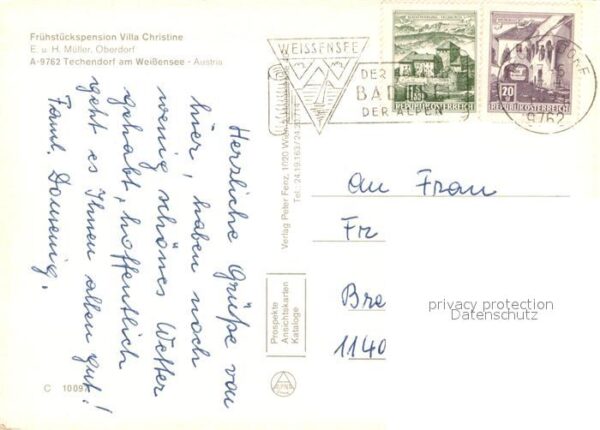 Frühstückspension Villa Christine
E. u. H. Müller, Oberdorf
A-9762 Techendorf am Weißensee - Austria
Herzliche Grüße von
hier, haben noch
wenig schönes Wetter
gehabt, hoffentlich
geht es Ihnen allen gut!
Faml. Domenig.
C 1009
Verlag Peter Fenz, 1020 Wien
Tel.: 24 19 163/24
Prospekte
Ansichtskarten
Kataloge
WEISSENSEE
DER
DER ALPEN
REPUBLIK ÖSTERREICH
20
REPUBLIK ÖSTERREICH
9762
An Frau
Fr
Bre
1140
privacy protection
Datenschutz